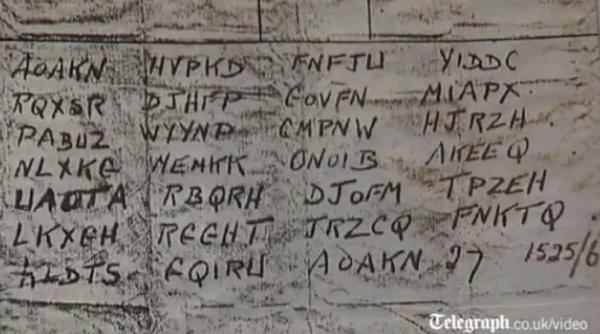 AOAKN HVPKD FNFJU YIDDC
RQXSR DJHFP GOVFN MIAPX
PABUZ WYYNP CMPNW HJRZH
NLXKG MEMKK ONOIB AKEEQ
UAOTA RBQRH DJOFM TPZEH
LKXGH RGGHT JRZCQ FNKTQ
KLDTS GQIRU AOAKN 27 1525/6
Telegraph.co.uk/video